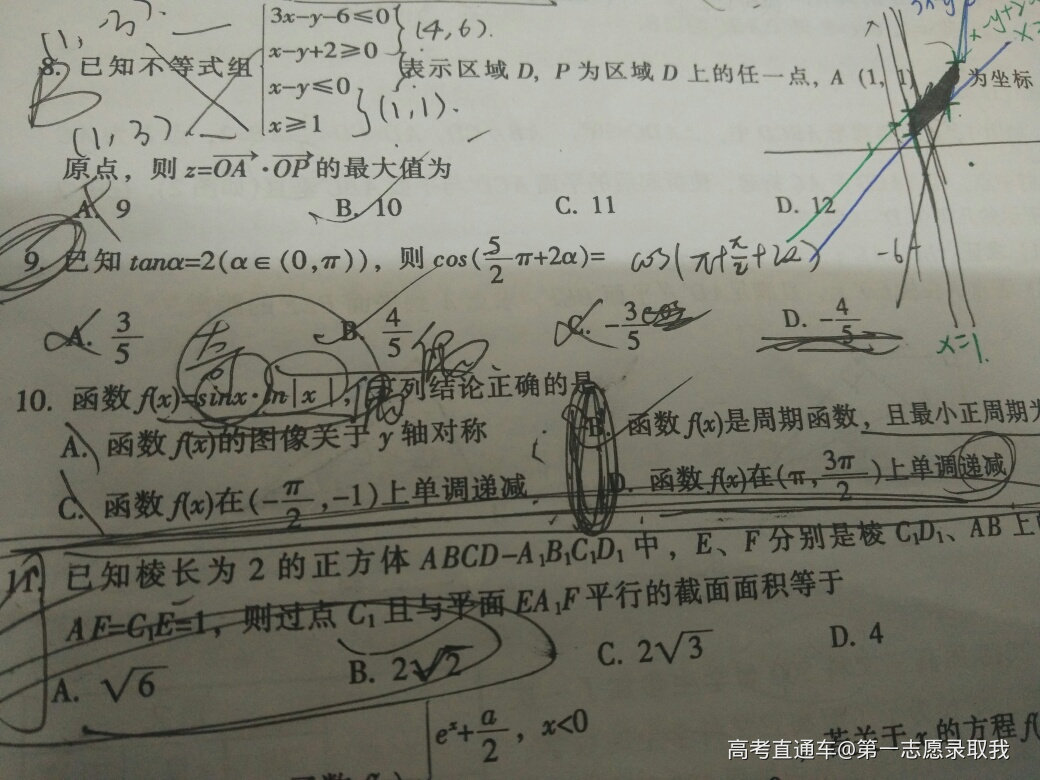 (1, 3).
3x-y-6≤0
x-y+2≥0 (4,6).
8. 已知不等式组 表示区域 D, P 为区域 D 上的任一点, A (1, 1) 为坐标
x-y≤0
x≥1 (1,1).
(1, 3)
原点，则 z=OA·OP的最大值为
A. 9 B. 10 C. 11 D. 12
9. 已知 tanα=2(α∈(0,π)), 则 cos(5/2 π+2α)= cos(π+π/2+2α)
-6
A. 3/5 B. 4/5 C. -3/5 D. -4/5
x=1.
10. 函数 f(x)=sinx·ln|x|, 下列结论正确的是
A. 函数 f(x)的图像关于 y 轴对称 B. 函数 f(x)是周期函数，且最小正周期为
C. 函数 f(x)在(-π/2,-1)上单调递减 D. 函数 f(x)在(π,3π/2)上单调递减
11. 已知棱长为 2 的正方体 ABCD-A₁B₁C₁D₁ 中，E、F 分别是棱 C₁D₁、AB 上
AF=C₁E=1，则过点 C₁ 且与平面 EA₁F 平行的截面面积等于
A. √6 B. 2√2 C. 2√3 D. 4
eˣ+a/2，x<0
若关于 x 的方程 f(
高考直通车@第一志愿录取我